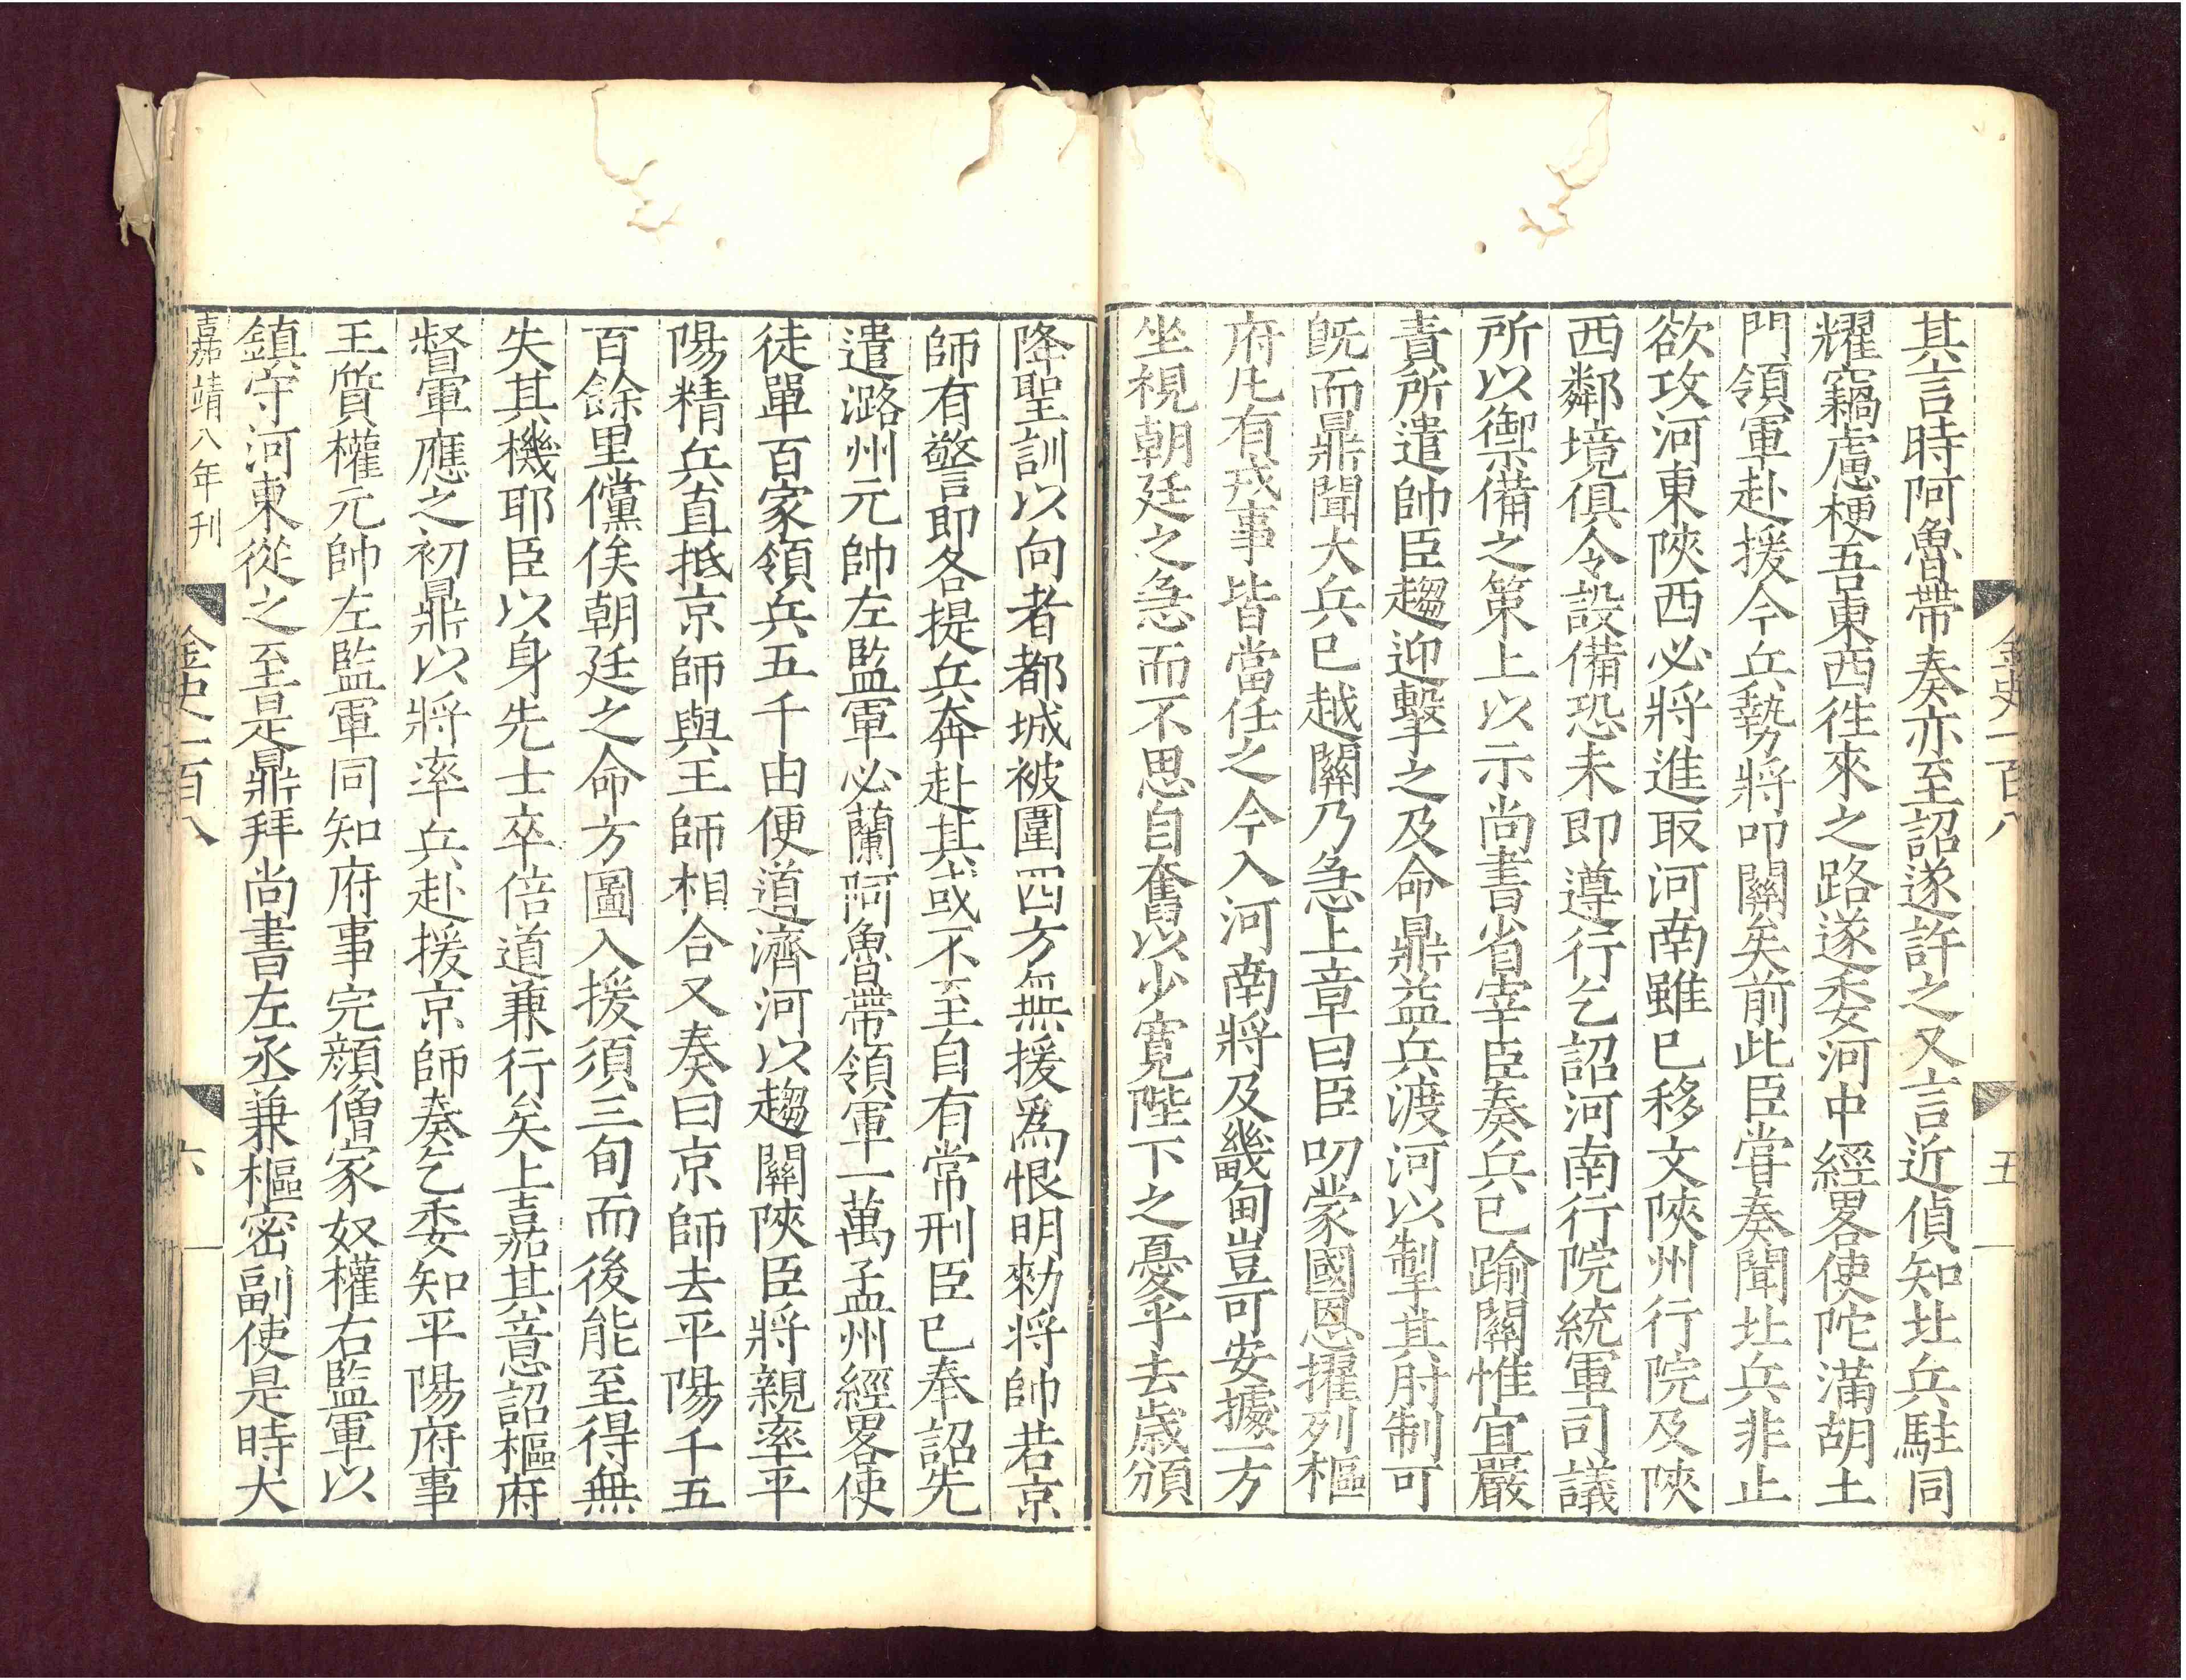 其言時阿魯帶奏亦至詔遂許之又言近偵知北兵駐同
耀竊慮梗吾東西徃來之路遂委河中經畧使陀滿胡土
門領軍赴援今兵勢將叩關矣前此臣嘗奏聞北兵非止
欲攻河東陜西必將進取河南雖已移文陜州行院及陜
西鄰境俱令設備恐未即遵行乞詔河南行院統軍司議
所以禦備之策上以示尚書省宰臣奏兵已踰關惟宜嚴
責所遣帥臣趨迎擊之及命鼎益兵渡河以掣其肘制可
旣而鼎聞大兵已越關乃急上章曰臣叨蒙國恩擢列樞
府凡有戎事皆當任之今入河南將及畿甸豈可安據一方
坐視朝廷之急而不思自奮以少寛陛下之憂乎去歲頒
金史一百八
五
降聖訓以向者都城被圍四方無援爲恨明勑將帥若京
師有警即各提兵奔赴其或不至自有常刑臣已奉詔先
遣潞州元帥左監軍必蘭阿魯帶領軍一萬孟州經畧使
徒單百家領兵五千由便道濟河以趨關陜臣將親率平
陽精兵直抵京師與王師相合又奏曰京師去平陽千五
百餘里儻俟朝廷之命方圖入援須三旬而後能至得無
失其機耶臣以身先士卒倍道兼行矣上嘉其意詔樞府
督軍應之初鼎以將率兵赴援京師奏乞委知平陽府事
王質權元帥左監軍同知府事完顏僧家奴權右監軍以
鎮守河東從之至是鼎拜尚書左丞兼樞密副使是時大
嘉靖八年刊
金史一百八
六